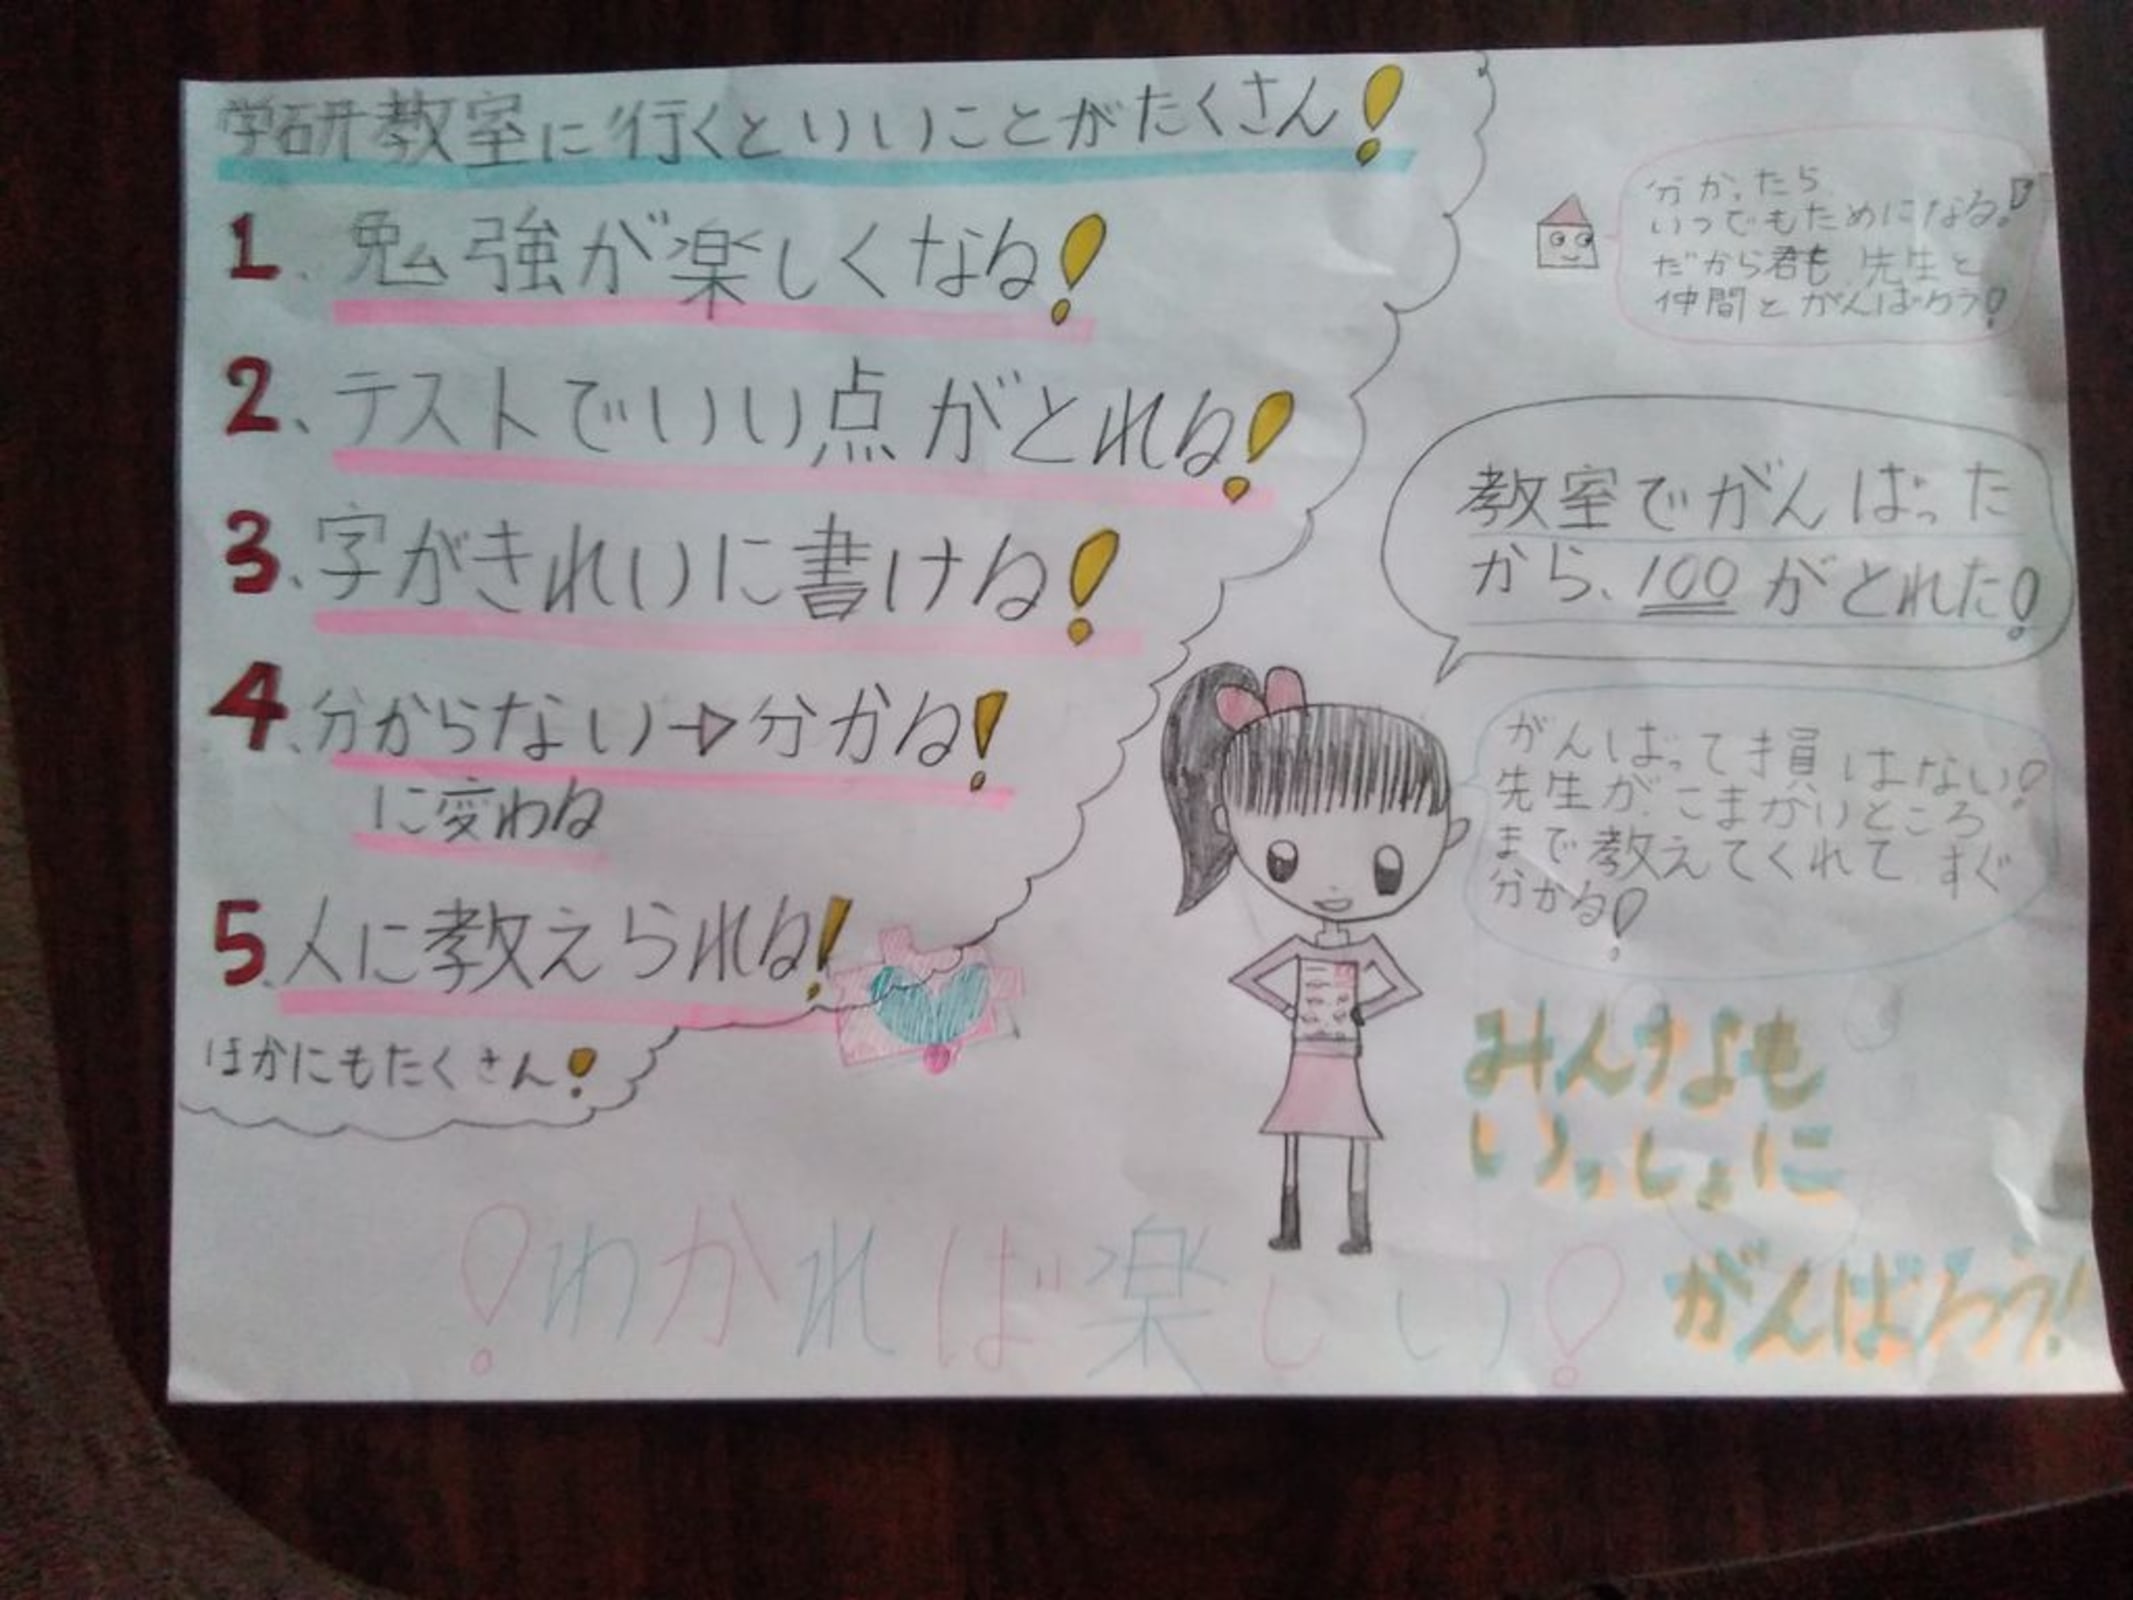 学研教室に行くといいことがたくさん!
1. 勉強が楽しくなる!
2、テストでいい点がとれる!
3、字がきれいに書ける!
4、分からない→分かる!
に変わる
5、人に教えられる!
ほかにもたくさん!
分かったら
いつでもためになる!
だから君も先生と
仲間とがんばろう!
教室でがんばった
から、100がとれた!
がんばって損はない!
先生が、こまかいところ
まで教えてくれて、すぐ
分かる!
みんなも
いっしょに
がんばろう!
!わかれば楽しい!